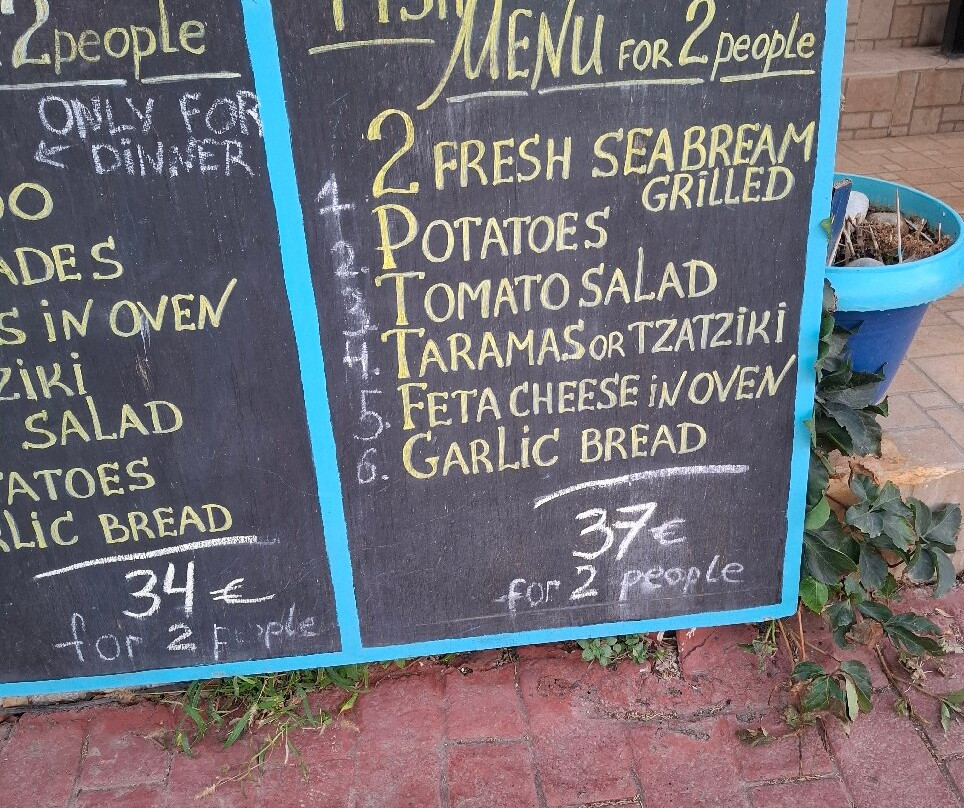 2 people
ONLY FOR
← DINNER
ADES
S IN OVEN
ZIKI
SALAD
ATOES
RLIC BREAD
34 €
for 2 people
FISH MENU FOR 2 people
2 FRESH SEABREAM
GRILLED
1. POTATOES
2. TOMATO SALAD
3. TARAMAS OR TZATZIKI
4. FETA CHEESE IN OVEN
5. GARLIC BREAD
6.
37 €
for 2 people